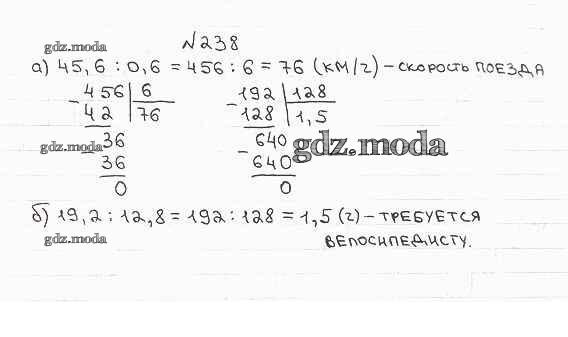 №238
gdz.moda
а) 45,6 : 0,6 = 456 : 6 = 76 (км/ч) – скорость поезда
456 | 6
- 42 | 76
36
- 36
0
192 | 128
- 128 | 1,5
640
- 640
0
gdz.moda
gdz.moda
б) 19,2 : 12,8 = 192 : 128 = 1,5 (ч) – требуется
gdz.moda
велосипедисту.